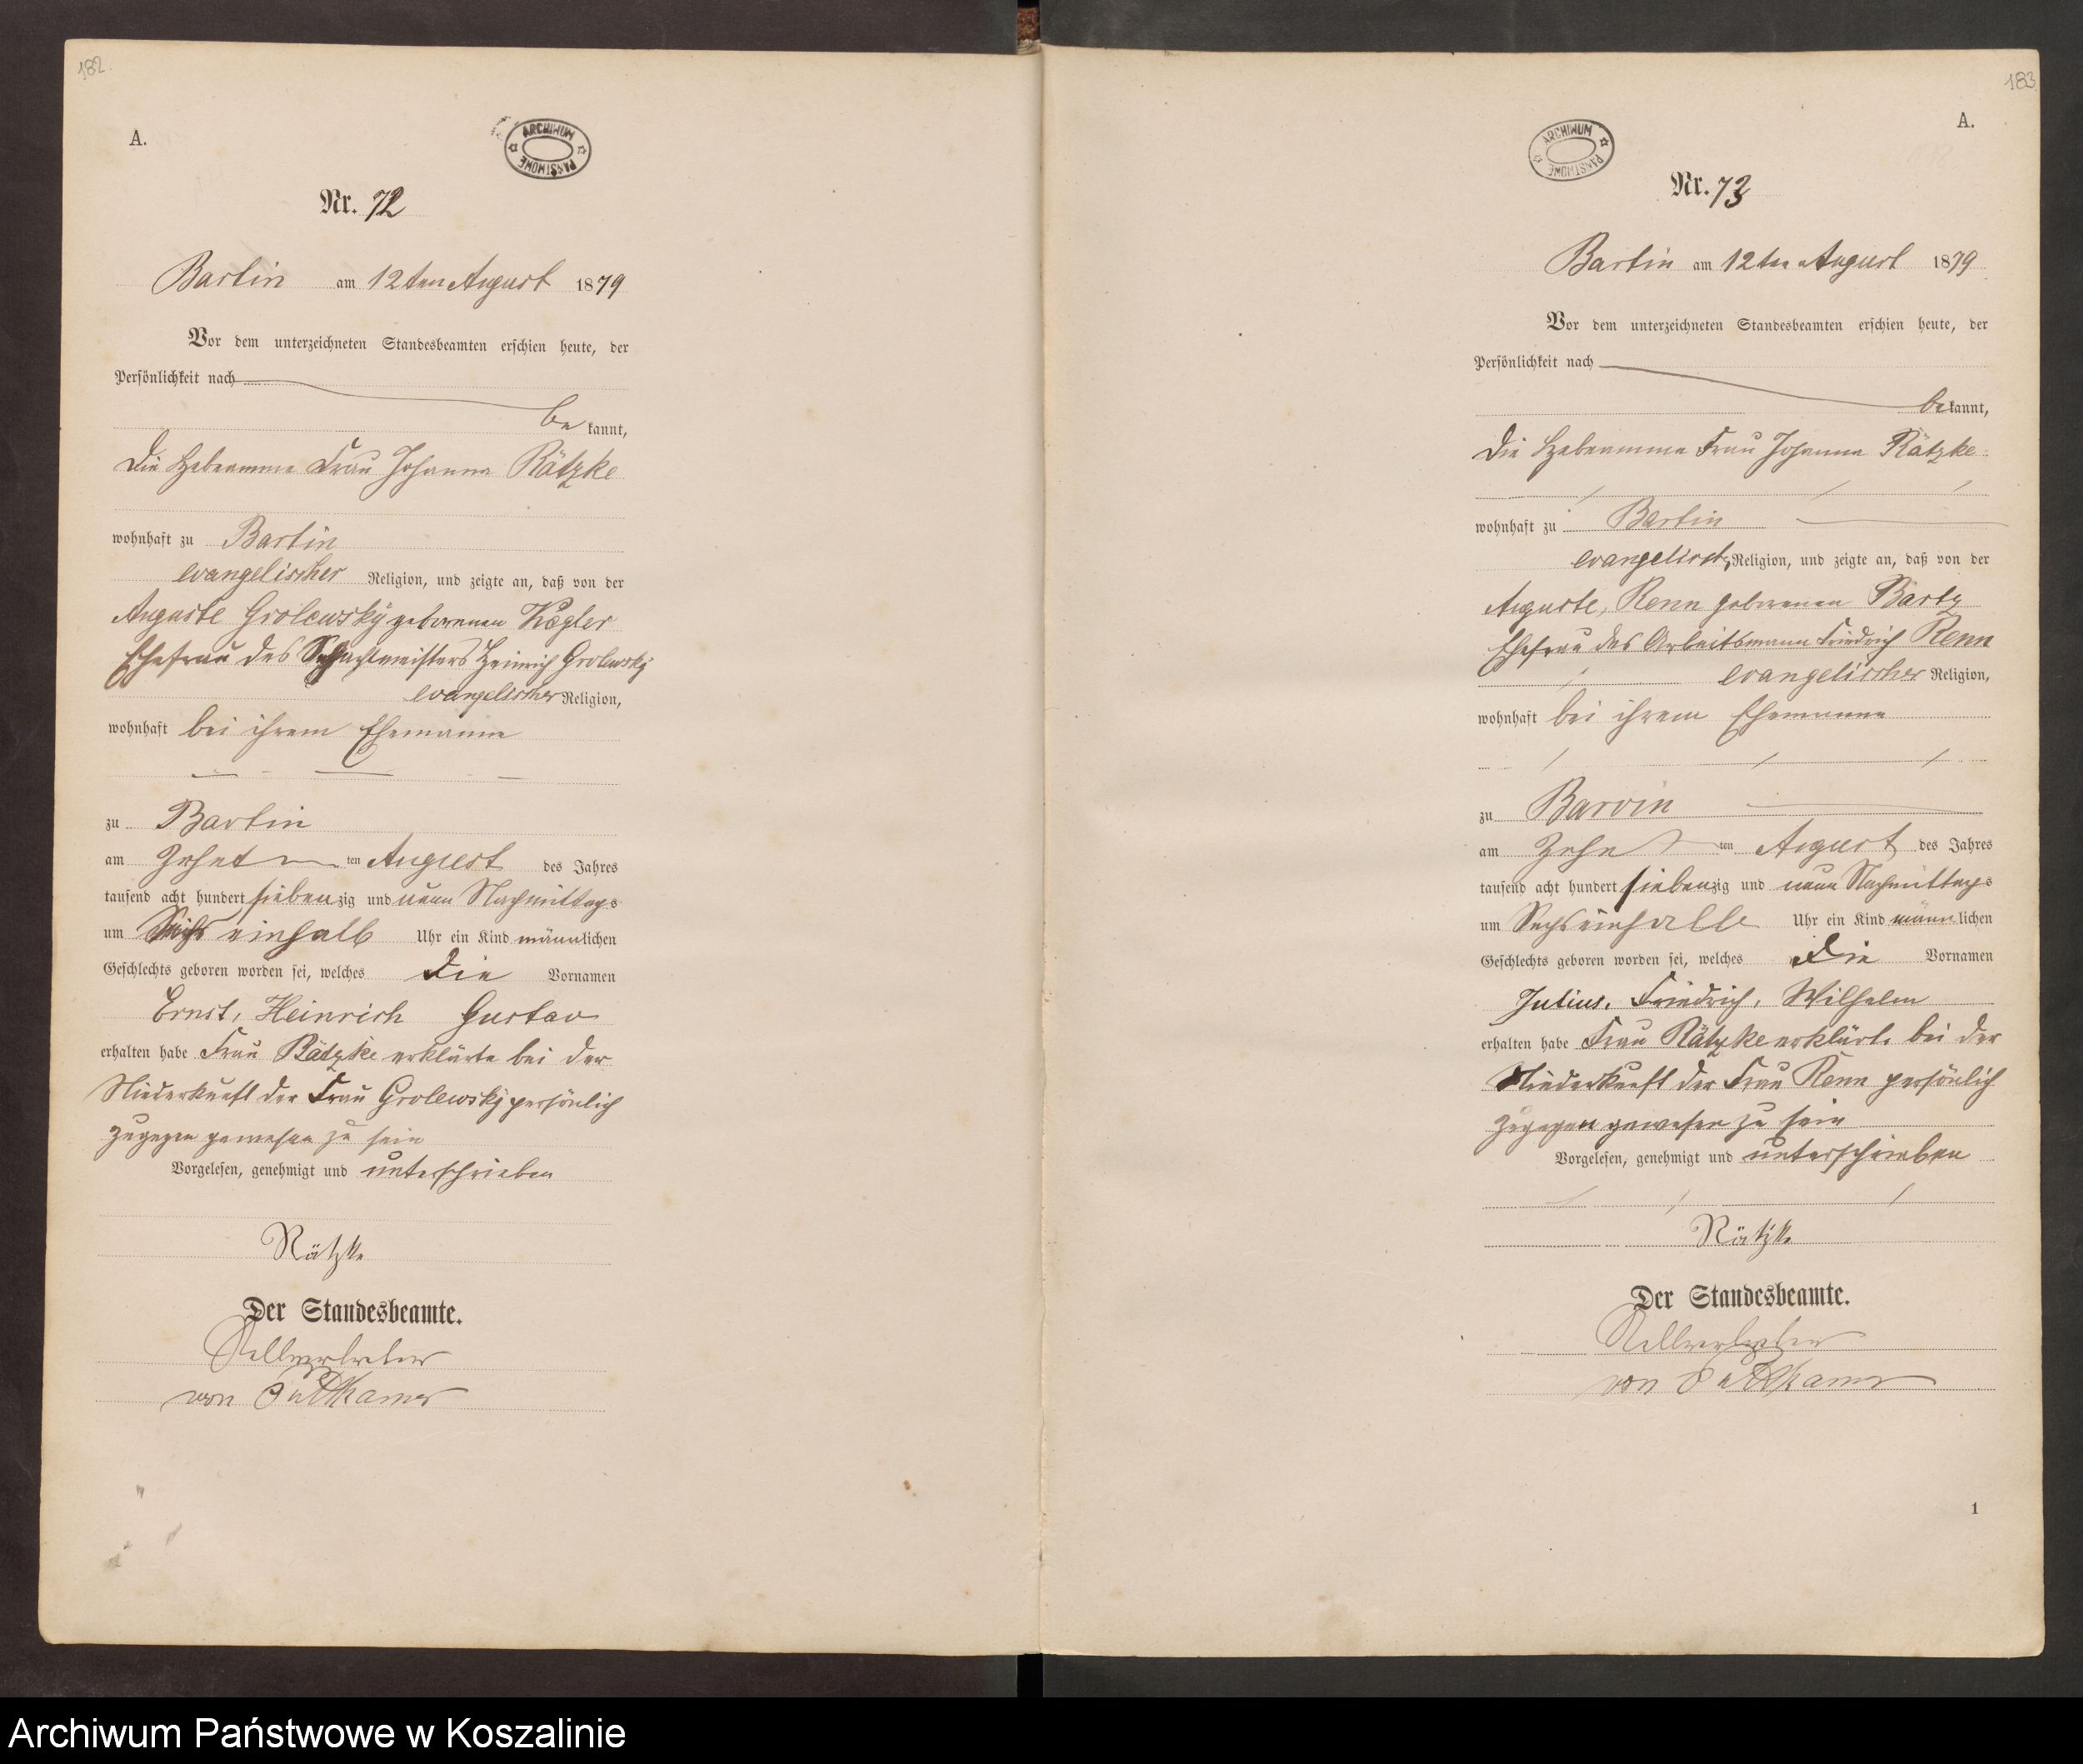 182.
A.
ARCHIWUM PAŃSTWOWE
Nr. 72
Bartin am 12ten August 1879
Vor dem unterzeichneten Standesbeamten erschien heute, der
Persönlichkeit nach
be kannt,
die Hebeamme Frau Johanna Rätzke
wohnhaft zu Bartin
evangelischer Religion, und zeigte an, daß von der
Auguste Grolewsky geborenen Kegler
Ehefrau des Schachtmeisters Heinrich Grolewsky
evangelischer Religion,
wohnhaft bei ihrem Ehemanne
zu Bartin
am Zehnt ten August des Jahres
tausend acht hundert siebenzig und neun Nachmittags
um Sechs einhalb Uhr ein Kind männlichen
Geschlechts geboren worden sei, welches die Vornamen
Ernst, Heinrich Gustav
erhalten habe Frau Rätzke erklärte bei der
Niederkunft der Frau Grolewsky persönlich
zugegen gewesen zu sein
Vorgelesen, genehmigt und unterschrieben
Rätzke
Der Standesbeamte.
Stellvertreter
von Puttkamer
183.
A.
ARCHIWUM PAŃSTWOWE
Nr. 73
Bartin am 12ten August 1879
Vor dem unterzeichneten Standesbeamten erschien heute, der
Persönlichkeit nach
bekannt,
die Hebeamme Frau Johanna Rätzke
wohnhaft zu Bartin
evangelisch Religion, und zeigte an, daß von der
Auguste, Renn geborenen Bartz
Ehefrau des Arbeitsmann Friedrich Renn
evangelischer Religion,
wohnhaft bei ihrem Ehemanne
zu Barvin
am Zehn ten August des Jahres
tausend acht hundert siebenzig und neun Nachmittags
um Sechseinhalb Uhr ein Kind männlichen
Geschlechts geboren worden sei, welches die Vornamen
Julius, Friedrich, Wilhelm
erhalten habe Frau Rätzke erklärte bei der
Niederkunft der Frau Renn persönlich
zugegen gewesen zu sein
Vorgelesen, genehmigt und unterschrieben
Rätzke
Der Standesbeamte.
Stellvertreter
von Puttkamer
1
Archiwum Państwowe w Koszalinie